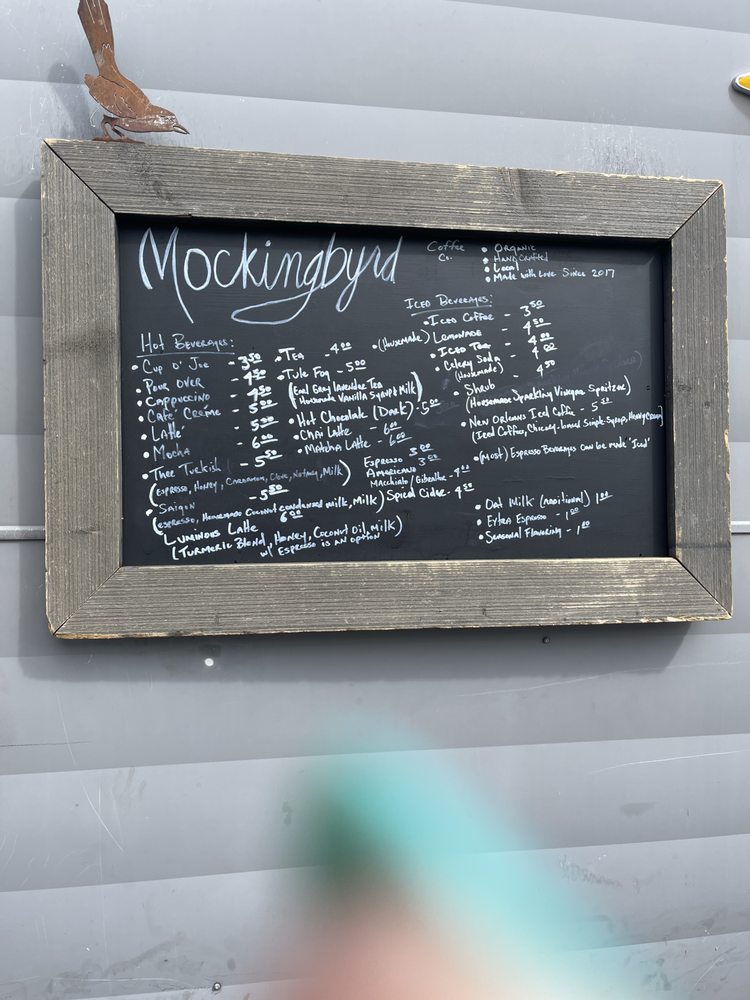 Mockingbyrd
Coffee Co.
• Organic
• Handcrafted
• Local
• Made with Love Since 2017
Hot Beverages:
• Cup O' Joe - 3.50
• Pour Over - 4.50
• Cappuccino - 4.50
• Café Crème - 5.00
• Latte - 5.00
• Mocha - 6.00
• Thee Turkish - 5.50
(Espresso, Honey, Cardamom, Clove, Nutmeg, Milk)
• Saigon - 5.50
(Espresso, Homemade Coconut condensed milk, Milk)
Luminous Latte 6.00
(Turmeric Blend, Honey, Coconut Oil, Milk)
w/ Espresso is an option
• Tea - 4.00
• Tule Fog - 5.00
(Earl Grey lavender Tea
Housemade Vanilla Syrup & Milk)
• Hot Chocolate (Dark) - 5.00
• Chai Latte - 6.00
• Matcha Latte - 6.00
Espresso 3.00
Americano 3.00
Macchiato / Gibralter - 4.00
Spiced Cider - 4.50
Iced Beverages:
• Iced Coffee - 3.50
• (Housemade) Lemonade - 4.50
• Iced Tea - 4.00
• Celery Soda - 4.00
(Housemade)
• Shrub - 4.50
(Housemade Sparkling Vinegar Spritzer)
• New Orleans Iced Coffee - 5.50
(Iced Coffee, Chicory-Infused Simple-Syrup, Heavy Cream)
• (Most) Espresso Beverages Can be made "Iced"
• Oat Milk (additional) 1.00
• Extra Espresso - 1.00
• Seasonal Flavoring - 1.00